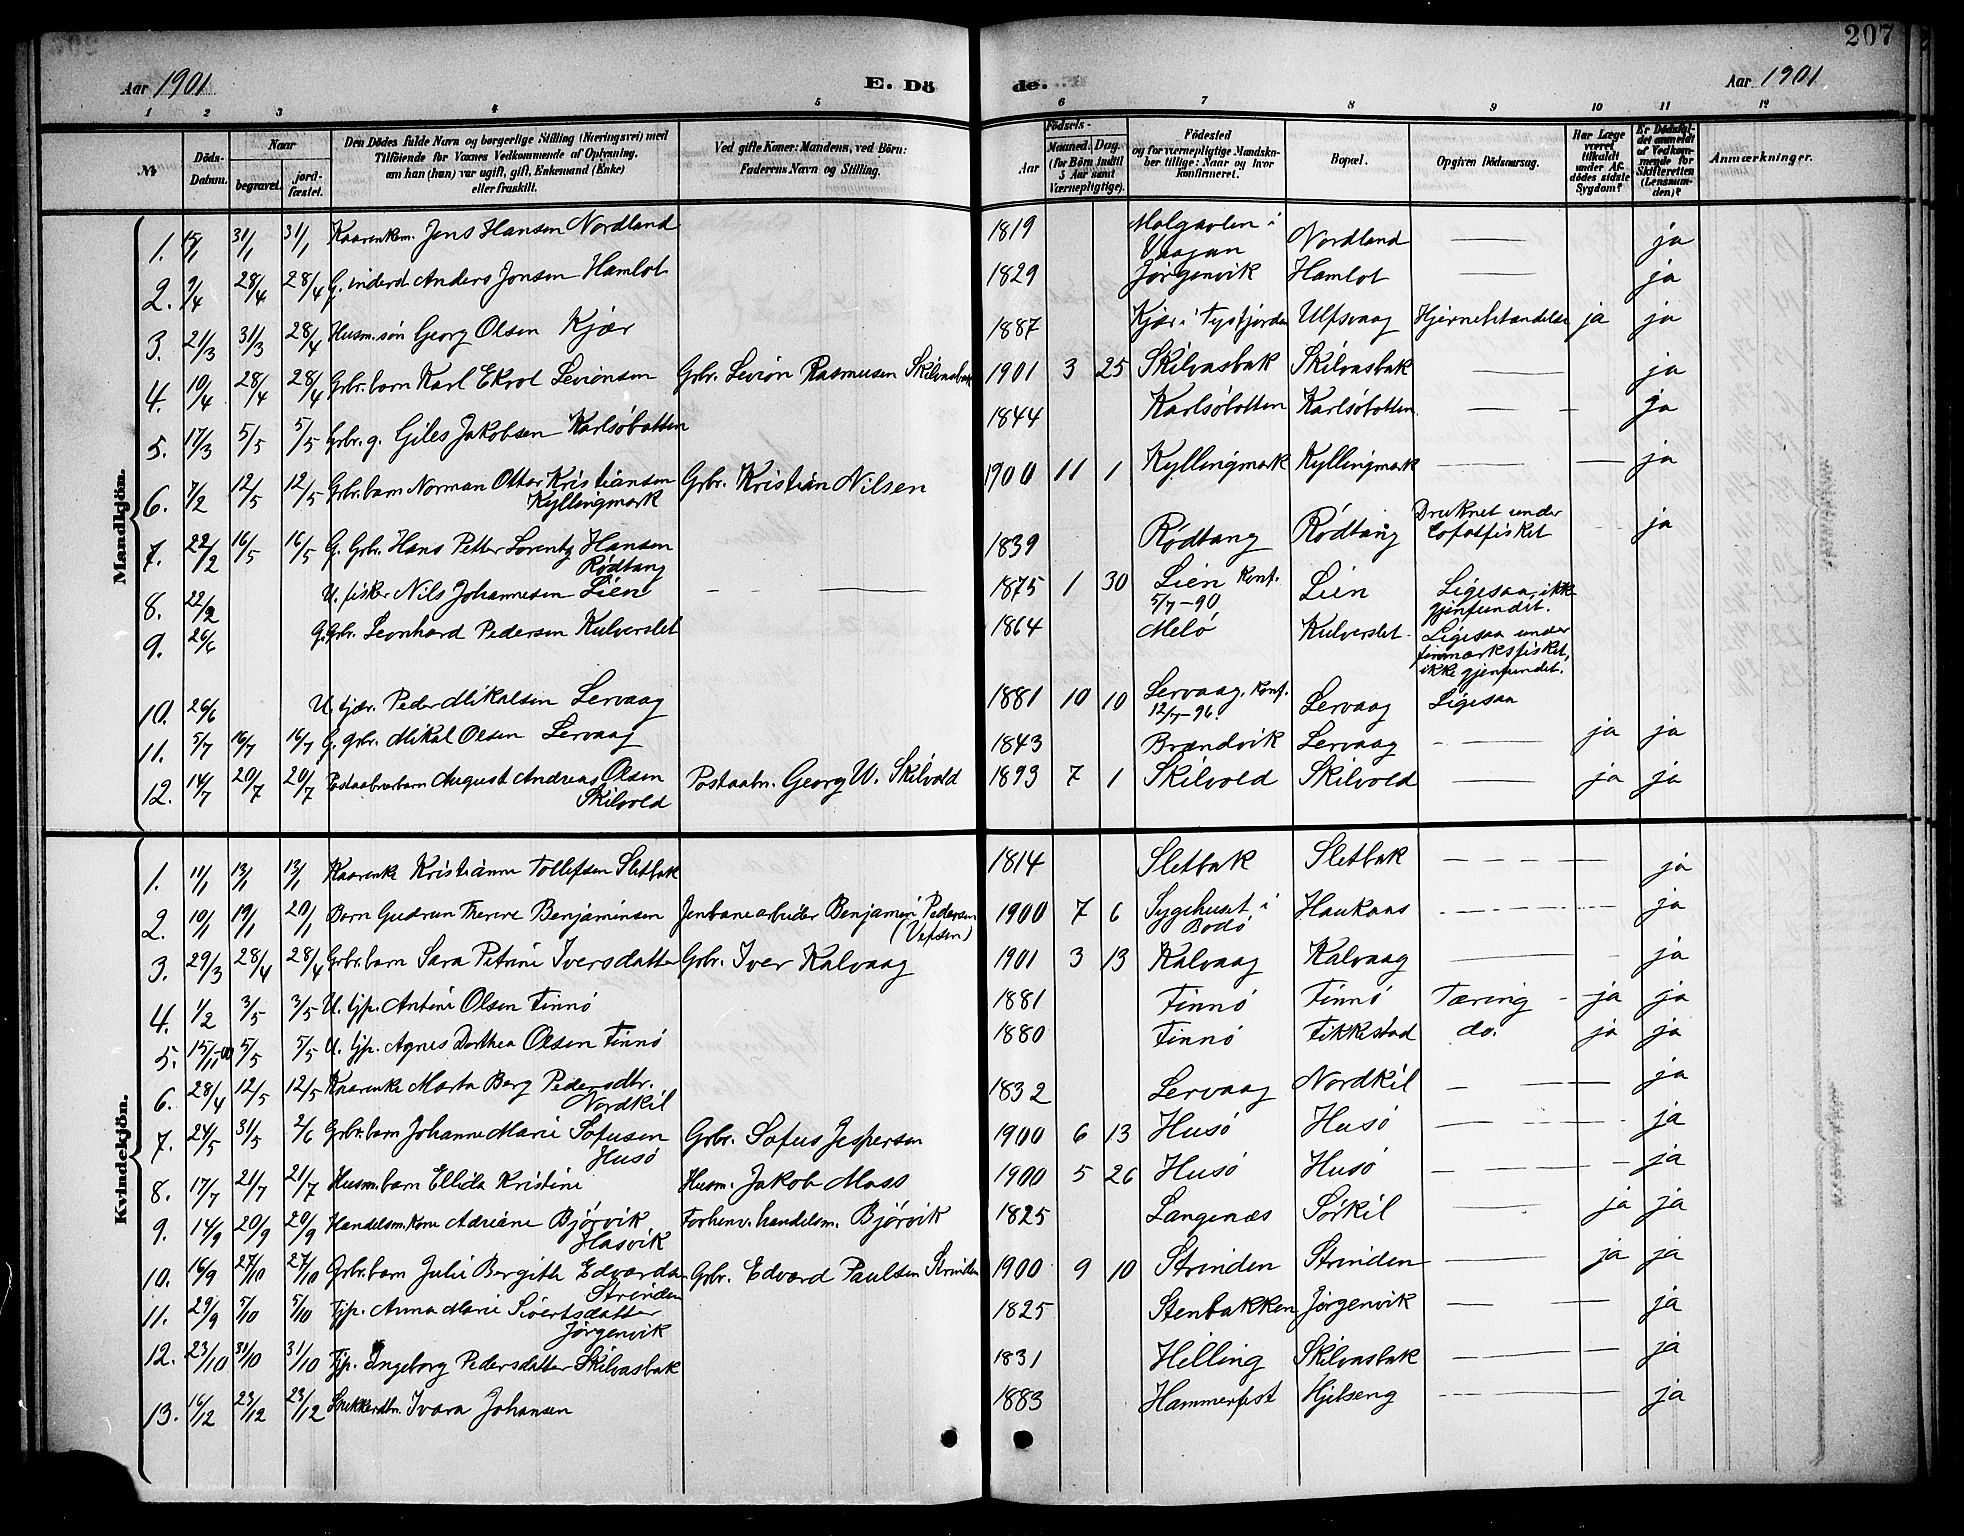 207
Aar 1901 E. Dö de. Aar 1901
1 2 3 4 5 6 7 8 9 10 11 12
Nr. Döds-Datum. Naar begravet. jord-fæstet. Den Dödes fulde Navn og borgerlige Stilling (Næringsvei) med Tilföiende for Voxnes Vedkommende af Oplysning, om han (hun) var ugift, gift, Enkemand (Enke) eller fraskilt. Ved gifte Koner: Mandens, ved Börn: Faderens Navn og Stilling. Födsels- Aar Maaned. Dag. (for Börn indtil 3 Aar samt Værnepligtige). Födested og for værnepligtige Mandskaber tillige: Naar og hvor konfirmeret. Bopæl. Opgiven Dödsaarsag. Har Læge været tilkaldt under Afdödes sidste Sygdom? Er Dödsfaldet anmeldt af Vedkommende for Skifteretten (Lensmanden)? Anmærkninger.
Mandkjön.
1. 15/1 31/1 31/1 Kaarenkem. Jens Hansen Nordland 1819 i Vaagan Nordland — ja
2. 9/4 28/4 28/4 G. inderst Anders Jonsen Hamlot 1829 Jørgenvik Hamlot — ja
3. 21/3 31/3 28/4 Husm.søn Georg Olsen Kjær 1887 Kjær i Tysfjorden Ulfsvaag Hjernebetændelse ja ja
4. 10/4 28/4 28/4 Grbr.barn Karl Ekrol Levionsen Grbr. Levion Rasmusen Skilvasbak 1901 3 25 Skilvasbak Skilvasbak — ja
5. 17/3 5/5 5/5 Grbr. g. Giles Jakobsen Karlsöbotten 1844 Karlsöbotten Karlsöbotten. — ja
6. 7/2 12/5 12/5 Grbr.barn Norman Ottar Kristiansen Grbr. Kristian Nilsen 1900 11 1 Kyllingmark Kyllingmark — — ja
Kyllingmark
7. 22/2 16/5 16/5 G. Grbr. Hans Petter Lorentz Hansen 1839 Rødtang Rødtang Druknet under Lofotfisket ja
Rødtang
8. 22/2 U. fisker Nils Johannesen Lien — — 1875 1 30 Lien Konf. 5/7-90 Lien Ligesaa, ikke gjenfundet.
9. 26/6 G. Grbr. Leonhard Pedersen Kulverslet 1864 Melö Kulverslet Ligesaa under finmarksfisket, ikke gjenfundet.
10. 26/6 U. tjær. Peder Mikalsen Lervaag 1881 10 10 Lervaag. Konf. 12/7-96. Lervaag Ligesaa
11. 5/7 16/7 16/7 G. grbr. Mikal Olsen Lervaag 1843 Brændvik Lervaag — ja ja
12. 14/7 20/7 20/7 Postaabnerbarn August Andreas Olsen Postaabn. Georg W. Skilvold 1893 7 1 Skilvold Skilvold — ja ja
Skilvold
Kvindekjön.
1. 11/1 13/1 13/1 Kaarenke Kristianne Tollefsen Sletbak 1814 Sletbak Sletbak — ja
2. 10/1 19/1 20/1 Barn Gudrun Therese Benjaminsen Jenbanearbeider Benjamin Pedersen (Vefsen) 1900 7 6 Sygehuset i Bodö Haukaas — ja
3. 29/3 28/4 28/4 Grbr.barn Sara Petrine Iversdatter Grbr. Iver Kalvaag 1901 3 13 Kalvaag Kalvaag — ja
4. 1/2 3/5 3/5 U. tjp. Antine Olsen Finnö 1881 Finnö Finnö Tæring - ja ja
5. 15/11 00 5/5 5/5 U. tjp. Agnes Dorthea Olsen Finnö 1880 Finnö Fikkstad do. ja ja
6. 28/4 12/5 12/5 Kaarenke Marta Berg Pedersdtr. 1832 Lervaag Nordkil — ja
Nordkil
7. 24/5 31/5 2/6 Grbr.barn Johanne Marie Sofusen Grbr. Sofus Jespersen 1900 6 13 Husö Husö — ja
Husö
8. 17/7 21/7 21/7 Husm.barn Ellida Kristine Husm. Jakob Mass 1900 5 26 Husö Husö — ja
9. 14/9 20/9 20/9 Handelsm. Kone Adriane Bjørvik, Forhenv. handelsm. Bjørvik 1825 Langenæs Sörkil ja ja
Hasvik
10. 16/9 27/10 27/10 Grbr.barn Julie Bergithe Edvarda Grbr. Edvard Paulsen Strinden 1900 9 10 Strinden Strinden — ja ja
Strinden
11. 29/9 5/10 5/10 Tjp. Anna Marie Sivertsdatter 1825 Stenbakken Jørgenvik — ja
Jørgenvik
12. 23/10 31/10 31/10 Tjp. Ingeborg Pedersdatter Skilvasbak 1831 Helling Skilvasbak — ja
13. 16/12 23/12 23/12 Ivara Johansen 1883 Hammerfest Hjelseng — ja